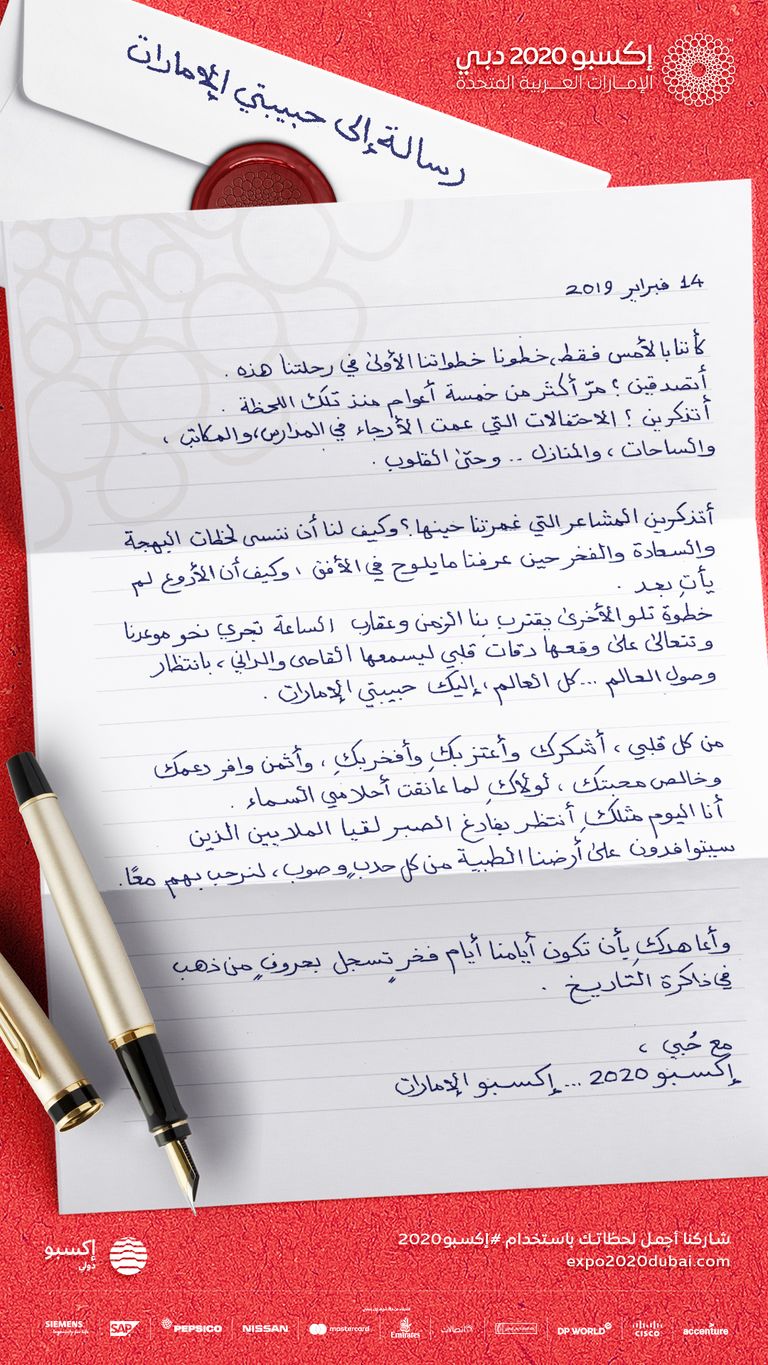 إكسبو 2020 دبي
الإمارات العربية المتحدة
رسالة إلى حبيبتي الإمارات
14 فبراير 2019
كأننا بالأمس فقط، خطونا خطواتنا الأولى في رحلتنا هذه .
أتصدقين ؟ مرّ أكثر من خمسة أعوام منذ تلك اللحظة .
أتذكرين ؟ الاحتفالات التي عمت الأرجاء في المدارس، والمكاتب ،
والساحات ، والمنازل .. وحتى القلوب .
أتذكرين المشاعر التي غمرتنا حينها ؟ وكيف لنا أن ننسى لحظات البهجة
والسعادة والفخر حين عرفنا ما يلوح في الأفق ، وكيف أن الأروع لم
يأتِ بعد .
خطوة تلو الأخرى يقترب بنا الزمن وعقارب الساعة تجري نحو موعدنا
وتتعالى على وقعها دقات قلبي ليسمعها القاصي والداني ، بانتظار
وصول العالم ... كل العالم ، إليك حبيبتي الإمارات .
من كل قلبي ، أشكرك وأعتز بكِ وأفخر بكِ ، وأثمن وافر دعمك
وخالص محبتك ، لولاكِ لما عانقت أحلامي السماء .
أنا اليوم مثلكِ أنتظر بفارغ الصبر لقيا الملايين الذين
سيتوافدون على أرضنا الطيبة من كل حدبٍ وصوب ، لنرحب بهم معًا .
وأعاهدكِ بأن تكون أيامنا أيام فخرٍ تسجل بحروفٍ من ذهب
في ذاكرة التاريخ .
مع حُبي ،
إكسبو 2020 ... إكسبو الإمارات
شاركنا أجمل لحظاتك باستخدام #إكسبو2020
expo2020dubai.com
إكسبو
دولي
SIEMENS
SAP
PEPSICO
NISSAN
mastercard
Emirates
DP WORLD
CISCO
accenture